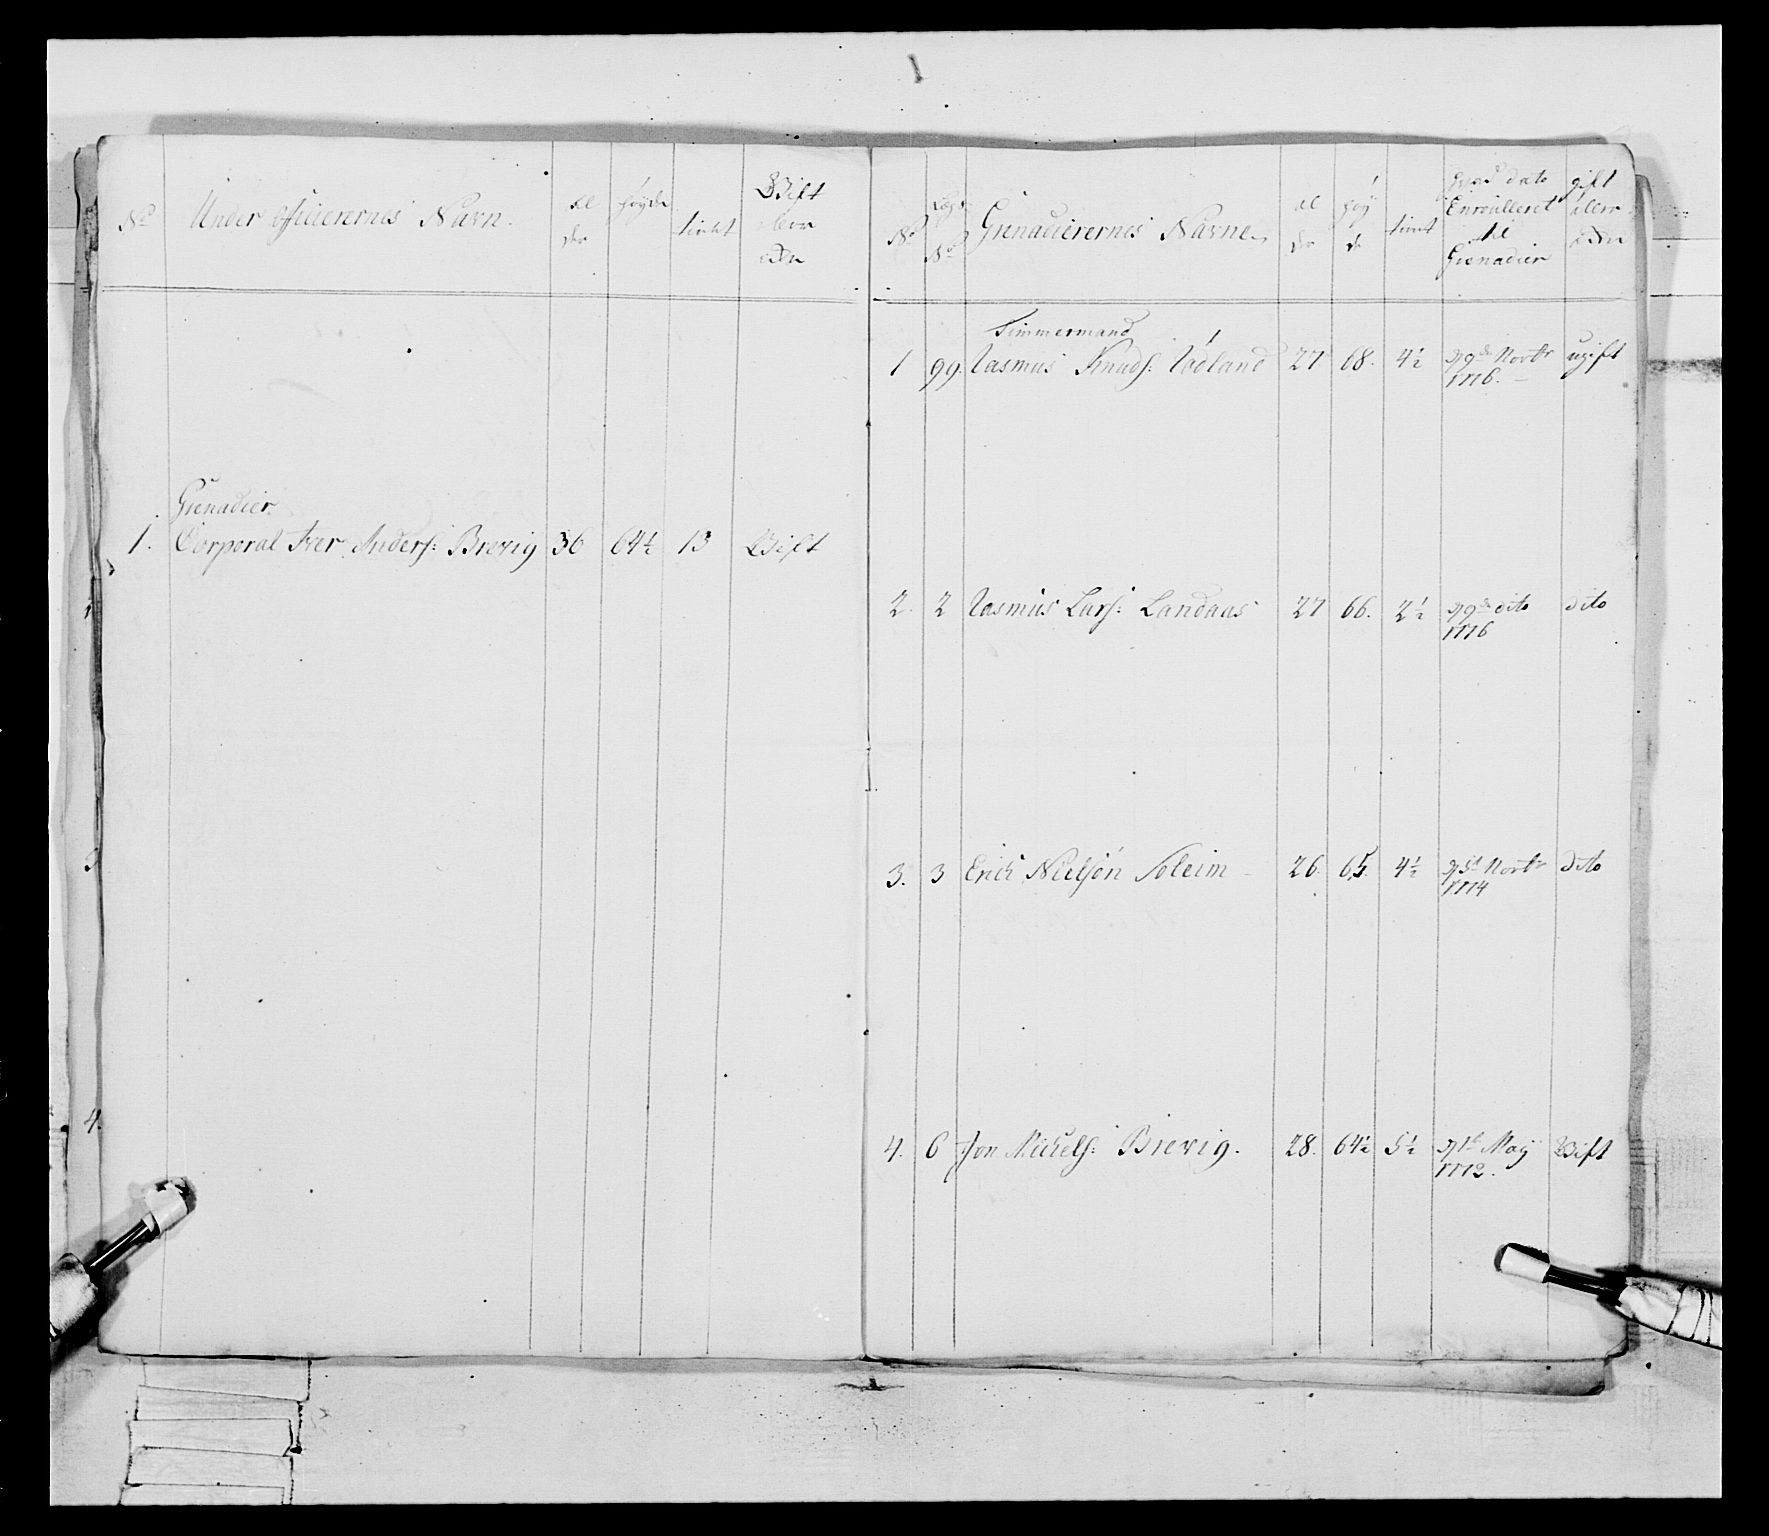 No
Under Officierernes Navn.
al
der
Høyde
tient
Gift
eller
Eÿ
Grenadier
1. Corporal Iver Anders: Brevig 36 64½ 13 Gift
No
Legs
No
Grenadierernes Navne
al
der
Høÿ
de
tient
Hvad dato
Enroulleret
til
Grenadier
gift
eller
Timmermand
1 99. Rasmus Knuds: Rødland 27 68. 4½ d 9de Novbr ugift
1776.
2. 2 Rasmus Lars: Landaas 27 66. 2½ d 9de dito dito
1776
3. 3 Erich Nielsøn Soleim 26. 65. 4½ d 5te Novbr dito
1774
4. 6 Jon Michels: Brevig. 28. 64½ 5½ d 1te Maÿ Gift
1772.
4.